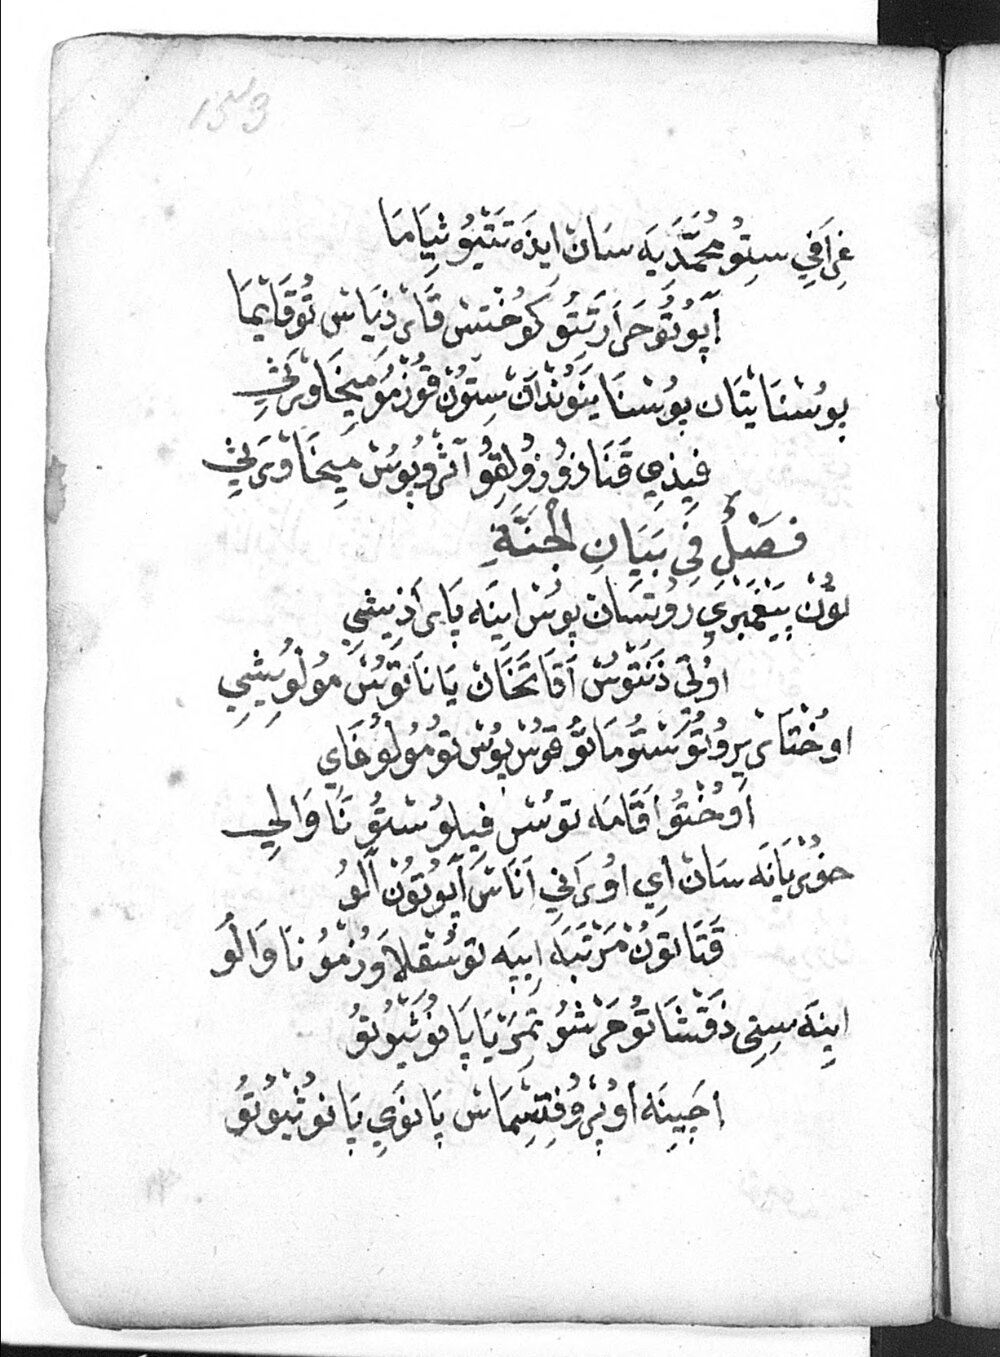 153
غِرَافِي سِتُو مُحَمَّدْ يَه سَانْ اِيذَه تَتَيُو ثِيَامَا
آپُو تُو حَرَارَتَتُو كَوُخْتِسْ قَاىْ ذِيَاسْ تُوقَايْمَا
پُوسْنَا يْتَانْ پُوسْنَا يَنَوُنْدَانْ سِتُونْ قُوزْمُو مِيخَاوْرَثِي
فِيذِي قَنَازُو زُولِقُو آنْثْرُوپُوسْ مِيخَاوْرَثِي
فَصْلٌ فِي بَيَانِ الْجَنَّةِ
تَوُنْ پَيْغَمْبَرِي رُوتَسَانْ پُوسْ اِينَه پَارَاذِيسِي
اوُلِي ذَنَتَوُسْ اَقَاتَخَانْ يَانَا تَوُسْ مُولُويِسِي
اوُخْتَاىْ پِرُوتُوسْتُومَاتُو قَوُسْ پُوسْ تُو مُولُوغَاي
اَوُخْتُو اَقَامَه تَوُسْ فِيلُوسْ تُو نَا وَالِي
حُورْيَانَه سَانْ اَي اوُرَانِي اَنَاسْ آپُوتُونْ آلُو
قَتَاتَوُنْ مَرْتَبَه اِيپَه تَوُسْقَلَاوَذْمُو نَا وَالُو
اِينَه سِنِى ذَقْسَا تُو حَرْسُو تِمَرْيَا پَانُو ثَيُوتُو
اِجِينَه اوُپْرُوفِتِسْمَاسْ پَانُوَي پَانُو ثَيُوتُو